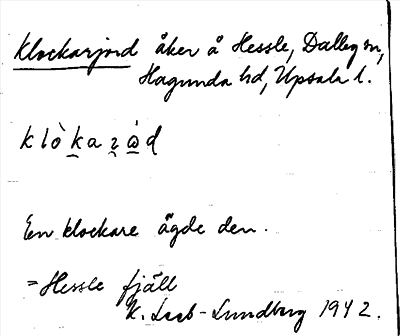 Klockarjord åker å Hessle, Dalby sn,
Hagunda hd, Upsala l.
En klockare ägde den.
= Hessle fjäll
K. Leeb-Lundberg 1942.